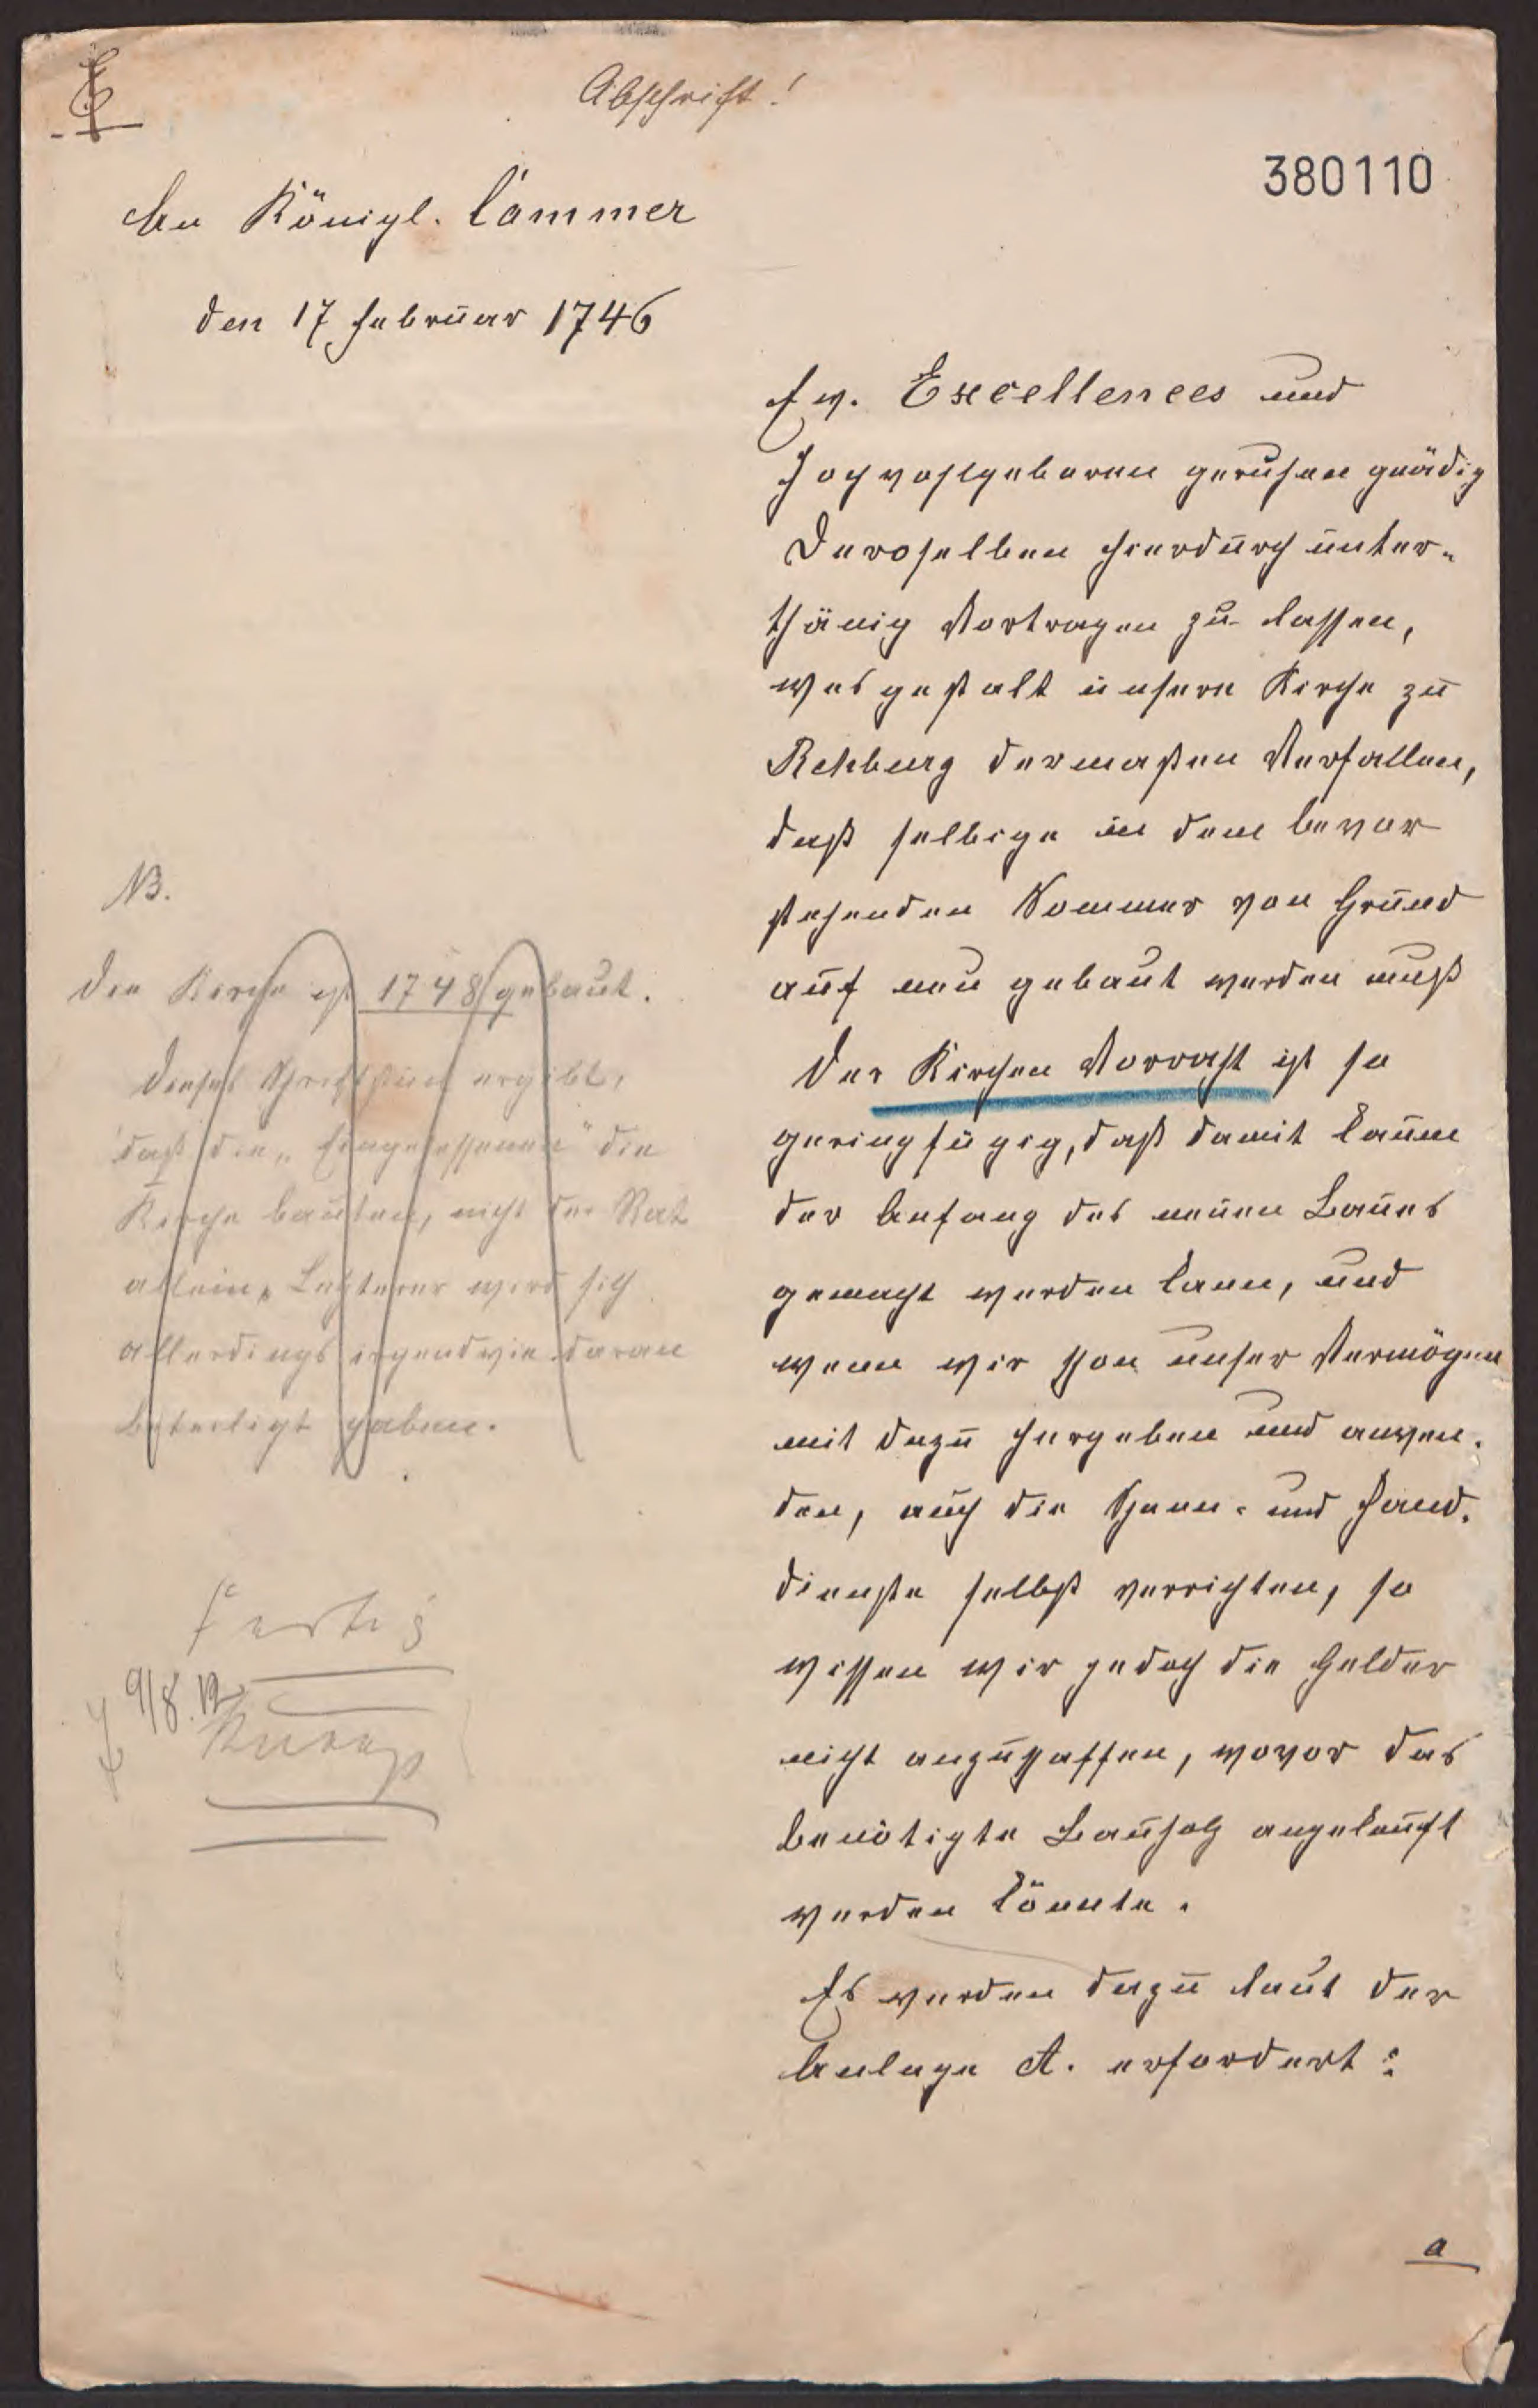 Abschrift!
380110
An Königl. Cammer
den 17 Februar 1746
Ew. Excellences und
Hochwohlgeboren geruhen gnädig
Deroselben hierdurch unter-
thänig Vortragen zu lassen,
was gestalt unsere Kirche zu
Rehburg dermaßen Verfallen,
daß selbige in dem bevor
stehenden Sommer von Grund
auf neu gebaut werden muß
Der Kirchen Vorraht ist so
geringfügig, daß damit kaum
der Anfang des neuen Baues
gemacht werden kann, und
wenn wir schon unser Vermögen
mit dazu hergeben und anwen-
den, auch die Spann- und Hand-
dienste selbst verrichten, so
wissen wir jedoch die Gelder
nicht anzuschaffen, wovor das
benötigte Bauholz angekauft
werden könnte.
Es werden dazu laut der
Anlage A. erfordert:
a
NB.
Die Kirche ist 1748 gebaut.
Dieses Schriftstück ergibt,
daß die „Eingesessenen" die
Kirche bauten, nicht der Rat
allein. Letzterer wird sich
allerdings irgendwie daran
beteiligt haben.
Fertig
9/8. 12